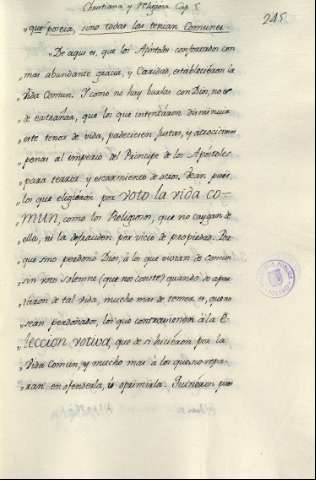 Christiana y Religiosa Cap. 5.
245.
"que poseìa, sino todas las tenian Comunes.
"De aqui es, que los Apóstoles confortados con
"mas abundante gracia, y Caridad, establecieron la
"Vida Comun. Y como no hay burlas con Dios, no es
"de extrañar, que los que intentaron disminuir
"este tenor de vida, padeciesen justas, y atrocisimas
"penas al imperio del Principe de los Apóstoles
"para terror y escarmiento de otros. Vean pues
"los que eligieron por voto la vida co-
"mun, como los Religiosos, que no caygan de
"ella, ni la defrauden por vicio de propiedad. Por
"que sino perdonò Dios, à los que vivian de comun
"sin voto solemne (que no conste) quando se apar-
"taron de tal vida, mucho mas de temer es, que no
"sean perdonados, los que contravienen à la E-
"leccion votiva, que de si hicieron por la
"Vida Comun, y mucho mas à los que no repa-
"ran en ofenderla, ù oprimirla. Quisieron pues